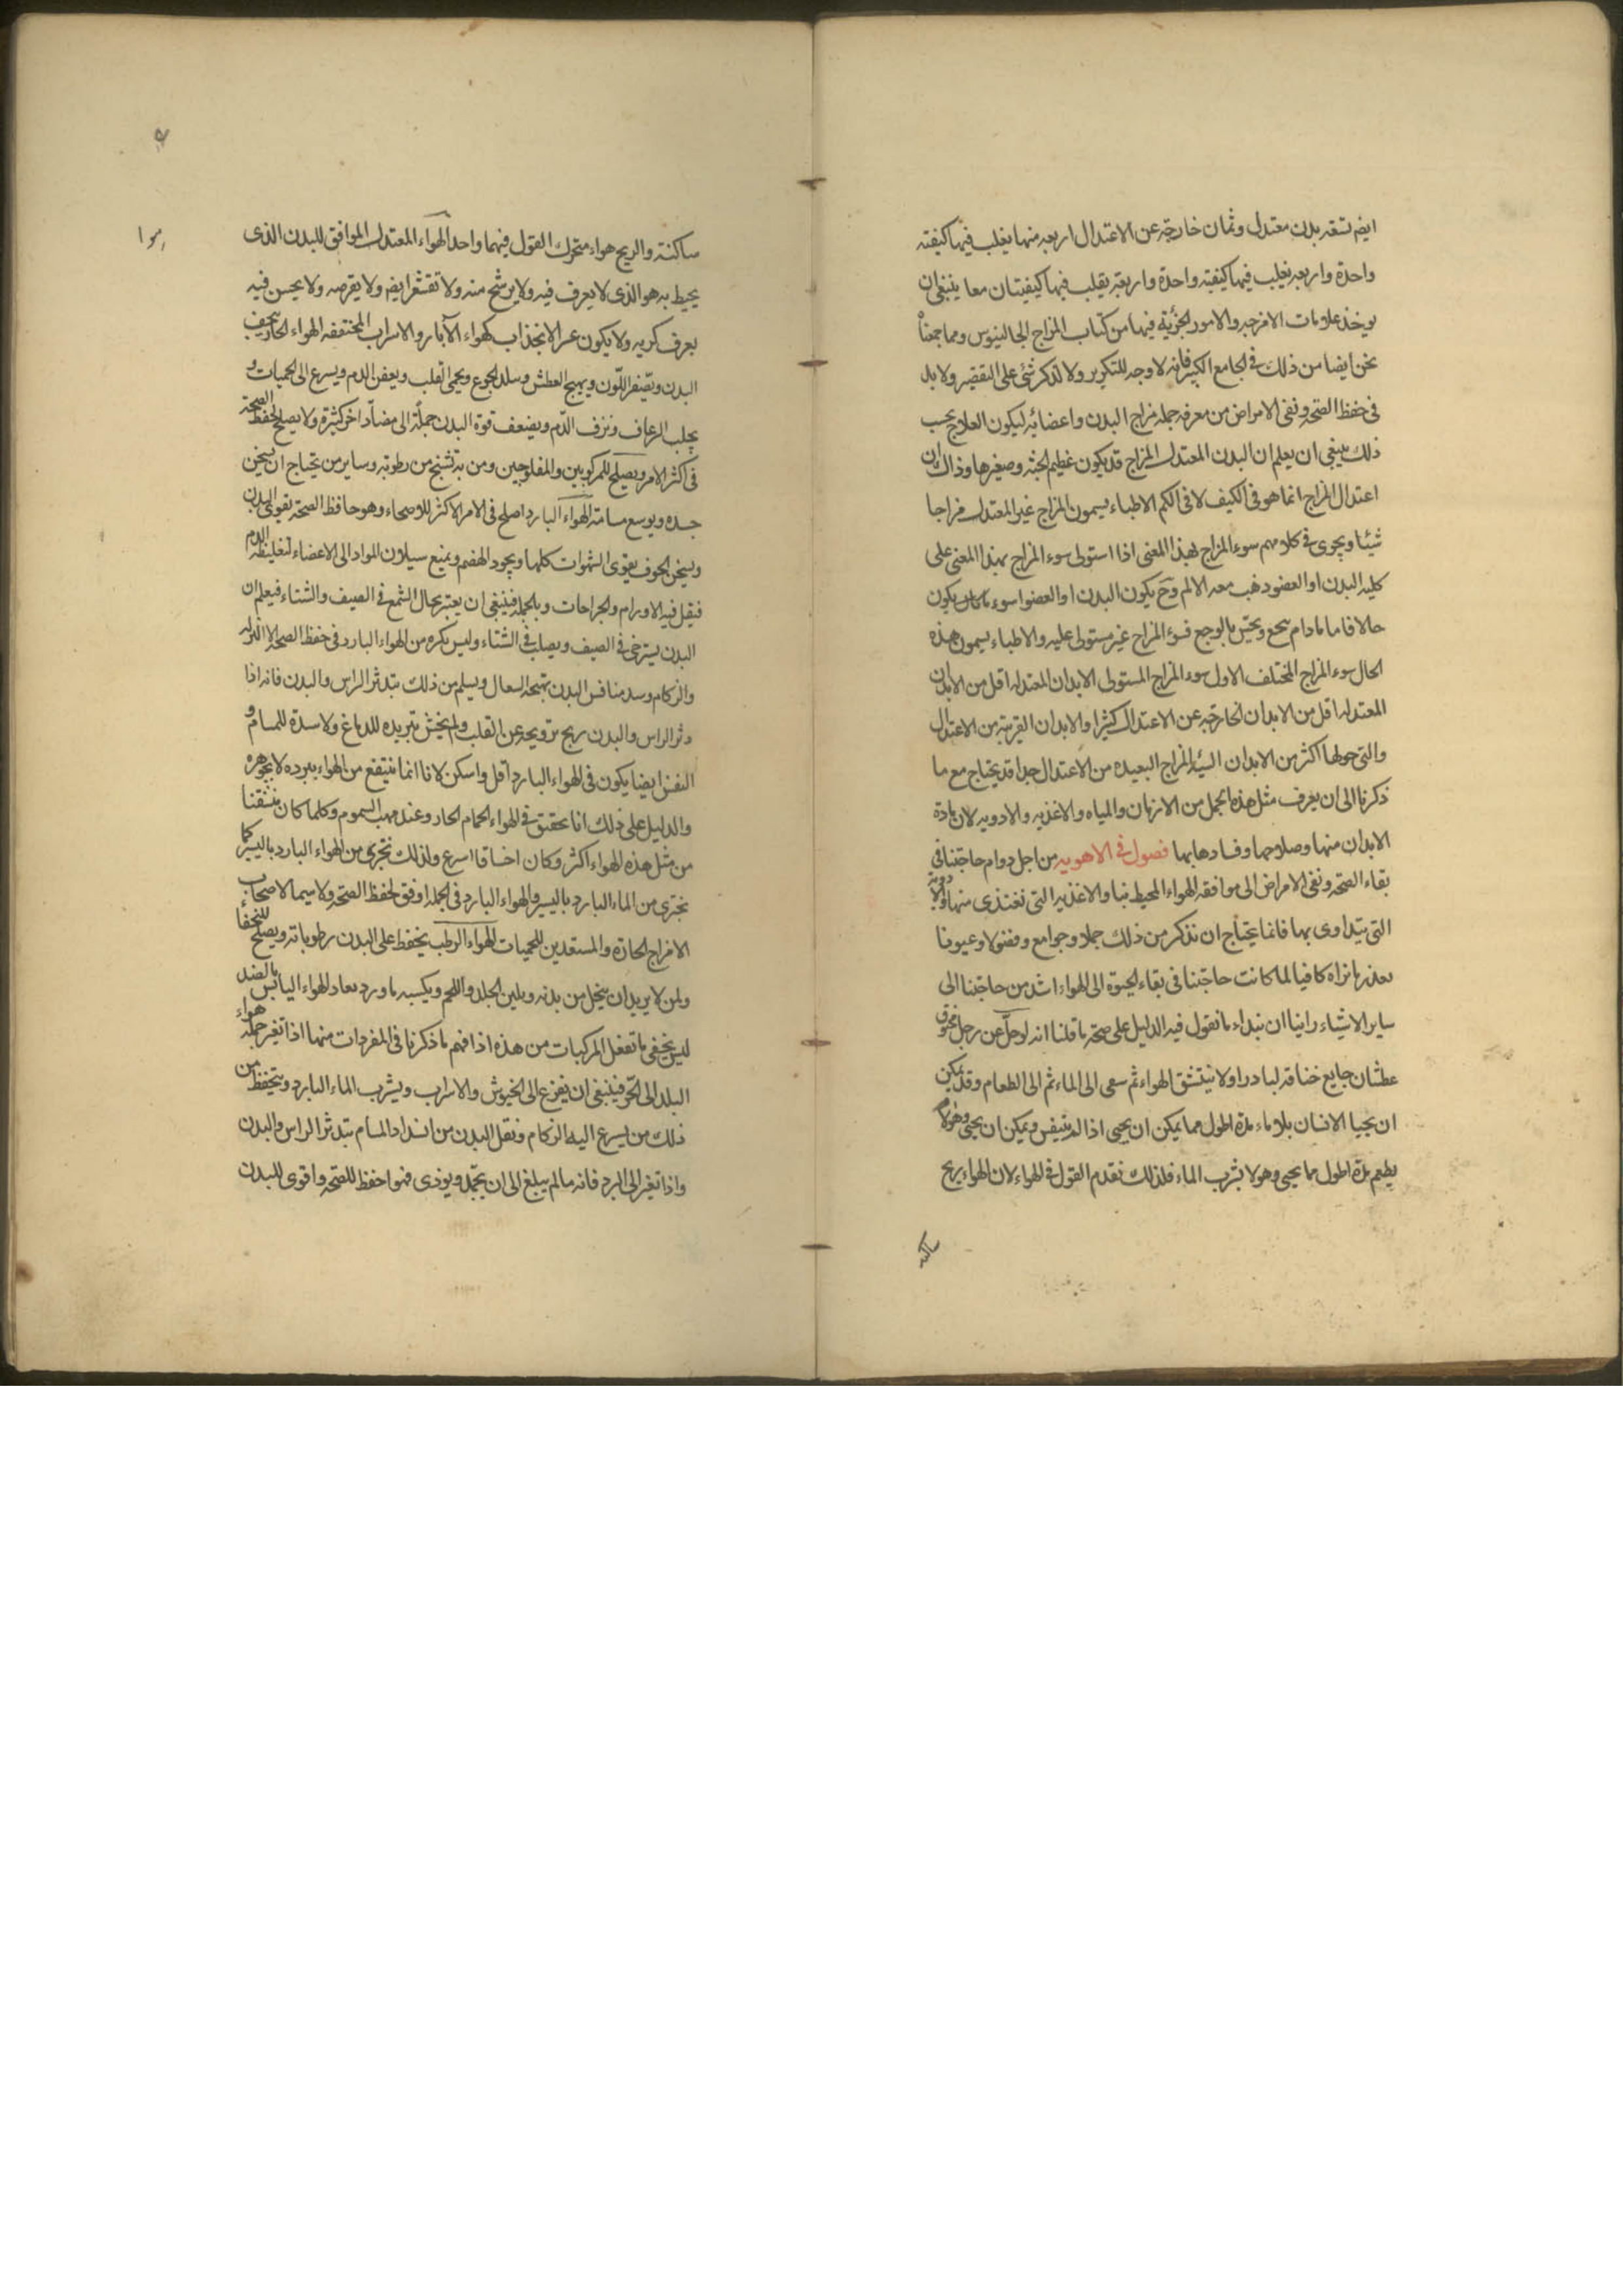 ايضا تسعه بدن معتدل وثمان خارجة عن الاعتدال اربعه منها يغلب فيها كيفيته
واحدة واربعه يغلب فيها كيفيته واحدة واربعة يقلب فيها كيفيتان معا ينبغي ان
يوخذ علامات الامزجه والامور الجزئية فيها من كتاب المزاج لجالينوس ومما جمعناه
نحن ايضا من ذلك في الجامع الكبير فانه لا وجه للتكرير ولا لذكر شئ على التقصير ولا بد
في حفظ الصحة ونفى الامراض من معرفه جمله مزاج البدن واعضائه ليكون العلاج بحسب
ذلك ينبغي ان يعلم ان البدن المعتدل المزاج قد يكون عظيم الجثه وصغيرها وذاك لان
اعتدال المزاج انما هو في الكيف لا في الكم الاطباء يسمون المزاج غير المعتدل مزاجا
شيئا ويجرى في كلامهم سوء المزاج لهذا المعنى اذا استولى سوء المزاج بهذا المعنى على
كليه البدن او العضو ذهب معه الالم وح يكون البدن او العضو سوء يكون
حالا فاما مادام يجع ويحس بالوجع فسوء المزاج غير مستولى عليه والاطباء يسمون هذه
الحال سوء المزاج المختلف الاول سوء المزاج المستولى الابدان المعتدله اقل من الابدان
المعتدله اقل من الابدان الخارجة عن الاعتدال كثيرا والابدان القريبة من الاعتدال
والتي حولها اكثر من الابدان السيئه المزاج البعيده من الاعتدال جدا قد يحتاج مع ما
ذكرنا الى ان يعرف مثل هذه الجمل من الازمان والمياه والاغذيه والادويه لان مادة
الابدان منها وصلاحها وفسادها بها فصول في الاهويه من اجل دوام حاجتنا في
بقاء الصحة ونفى الامراض الى موافقه الهواء المحيط بنا والاغذيه التي نغتذى منها والادوية
التي يتداوى بها فانما يحتاج ان نذكر من ذلك جملا وجوامع وفصولا وعيونا
بعذر ما نراه كافيا لما كانت حاجتنا في بقاء الحيوة الى الهواء اشد من حاجتنا الى
ساير الاشياء راينا ان نبداء ما نقول فيه الدليل على صحة ما قلنا انه لو حل عن رجل مخنوق
عطشان جايع خناقه لبادر اولا يتنشق الهواء ثم سعى الى الماء ثم الى الطعام وقد يمكن
ان يحيا الانسان بلا ماء مدة اطول مما يمكن ان يحيى اذا لم يتنفس ويمكن ان يحيى وهو لا
يطعم مدة اطول مما يحيى وهو لا يشرب الماء فلذلك نقدم القول في الهواء لان الهواء ريح
ساكنه
ساكنة والريح هواء متحرك القول فيهما واحد الهواء المعتدل الموافق للبدن الذى
يحيط به هو الذى لا يعرف فيه ولا يرشح منه ولا تقشعر ايضا ولا يقرصه ولا يحسن فيه
بعرف كريه ولا يكون عسر الانجذاب كهواء الآبار والاسراب المختنقه الهواء الحار يجفف
البدن ويصفر اللون ويهيج العطش ويبلد الجوع ويحمى القلب ويعفن الدم ويسرع الى الحميات و
يجلب الرعاف ونزف الدم ويضعف قوة البدن جملة الى مضاد اخر كثيرة ولا يصلح لحفظ الصحة
في اكثر الامر ويصلح للمزكومين والمفلوجين ومن به تشنج من رطوبه وساير من يحتاج ان يسخن
جسده ويوسع مسامه الهواء البارد اصلح في الامر الاكثر للاصحاء وهو حافظ الصحة يقوى البدن
ويسخن الجوف يقوى الشهوات كلها ويجود الهضم ويمنع سيلان المواد الى الاعضاء لتغليظه الدم
فيقل فيه الاورام والجراحات وبالجمله فينبغي ان يعتبر بحال الشمع في الصيف والشتاء فيعلم ان
البدن يسترخى في الصيف ويصلب في الشتاء وليس يكره من الهواء البارد في حفظ الصحة الا النزله
والزكام وسد منافس البدن بتهيجه السعال ويسلم من ذلك بتدثر الراس والبدن فانه اذا
دثر الراس والبدن ربح ترويحه عن القلب ولم يخش تبريده للدماغ ولا سده للمسام و
النفس ايضا يكون في الهواء البارد اقل واسكن لانا انما ننتفع من الهواء ببرده لا بجوهره
والدليل على ذلك انا في الهواء الحمام الحار وعند مهب السموم وكلما كان تنشقنا
من مثل هذه الهواء اكثر وكان اسرع ولذلك نجتزى من الهواء البارد باليسير كما
نجتزى من الماء البارد باليسير والهواء البارد في الجمله اوفق لحفظ الصحة ولا سيما لاصحاب
الامزاج الحاره والمستعدين للحميات الهواء الرطب يحفظ على البدن رطوباته ويصلح للنحفا
ولمن لا يريد ان ينحل من بدنه ويلين الجلد واللحم ويكسبه الهواء اليابس بالضد
ليس يخفى ما تفعل المركبات من هذه اذا فهم ما ذكرنا في المفردات منها اذا تغير جملة هواء
البلد الى الحر فينبغي ان يفزع الى الخيوش والاسراب ويشرب الماء البارد ويتحفظ من
ذلك من يسرع اليه الزكام وثقل البدن من انسداد المسام بتدثر الراس والبدن
واذا تغير الى البرد فانه ما لم يبلغ الى ان يجمد ويوذى فهو احفظ للصحة واقوى للبدن